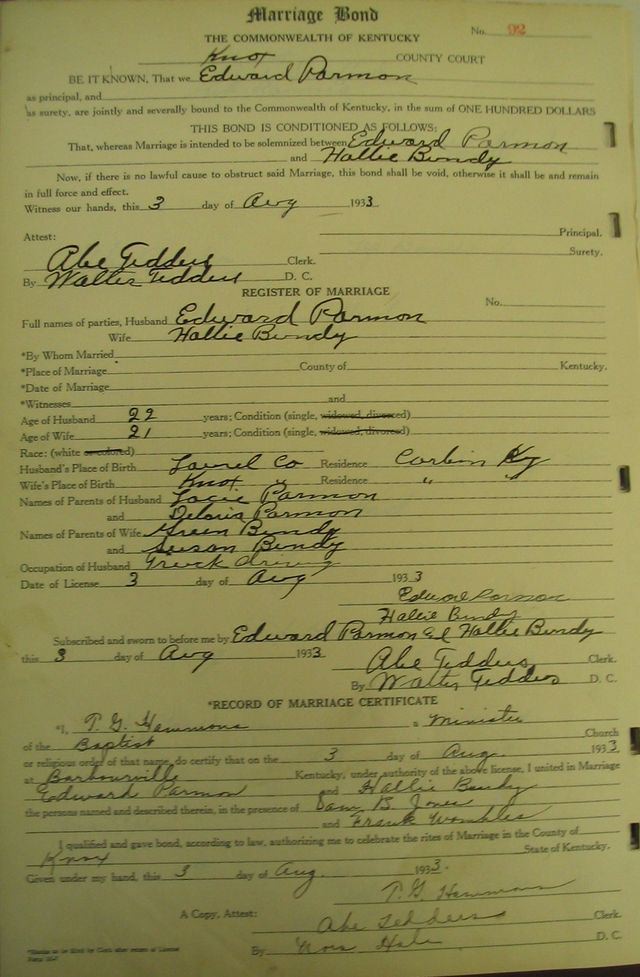 Marriage Bond
No. 92
THE COMMONWEALTH OF KENTUCKY
Knox COUNTY COURT
BE IT KNOWN, That we Edward Parmon
as principal, and
as surety, are jointly and severally bound to the Commonwealth of Kentucky, in the sum of ONE HUNDRED DOLLARS
THIS BOND IS CONDITIONED AS FOLLOWS:
That, whereas Marriage is intended to be solemnized between Edward Parmon
and Hallie Bundy
Now, if there is no lawful cause to obstruct said Marriage, this bond shall be void, otherwise it shall be and remain
in full force and effect.
Witness our hands, this 3 day of Aug 1933
Principal.
Attest:
Surety.
Abe Tedders Clerk.
By Walter Tedders D. C.
REGISTER OF MARRIAGE
No.
Full names of parties, Husband Edward Parmon
Wife Hallie Bundy
*By Whom Married
*Place of Marriage County of Kentucky.
*Date of Marriage
*Witnesses and
Age of Husband 22 years; Condition (single, widowed, divorced)
Age of Wife 21 years; Condition (single, widowed, divorced)
Race: (white or colored)
Husband's Place of Birth Laurel Co Residence Corbin Ky
Wife's Place of Birth Knox " Residence " "
Names of Parents of Husband Parmon
and Parmon
Names of Parents of Wife Green Bundy
and Susan Bundy
Occupation of Husband Truck driving
Date of License 3 day of Aug 1933
Edward Parmon
Hallie Bundy
Subscribed and sworn to before me by Edward Parmon & Hallie Bundy
this 3 day of Aug 1933
Abe Tedders Clerk.
By Walter Tedders D. C.
*RECORD OF MARRIAGE CERTIFICATE
*I, T. G. Hammons a Minister
of the Baptist Church
or religious order of that name, do certify that on the 3 day of Aug. 1933
at Barbourville Kentucky, under authority of the above license, I united in Marriage
Edward Parmon and Hallie Bundy
the persons named and described therein, in the presence of Sam B. Jones
and Frank Wombles
I qualified and gave bond, according to law, authorizing me to celebrate the rites of Marriage in the County of
Knox State of Kentucky.
Given under my hand, this 3 day of Aug. 1933.
T. G. Hammons
A Copy, Attest: Abe Tedders Clerk.
By Hale D. C.